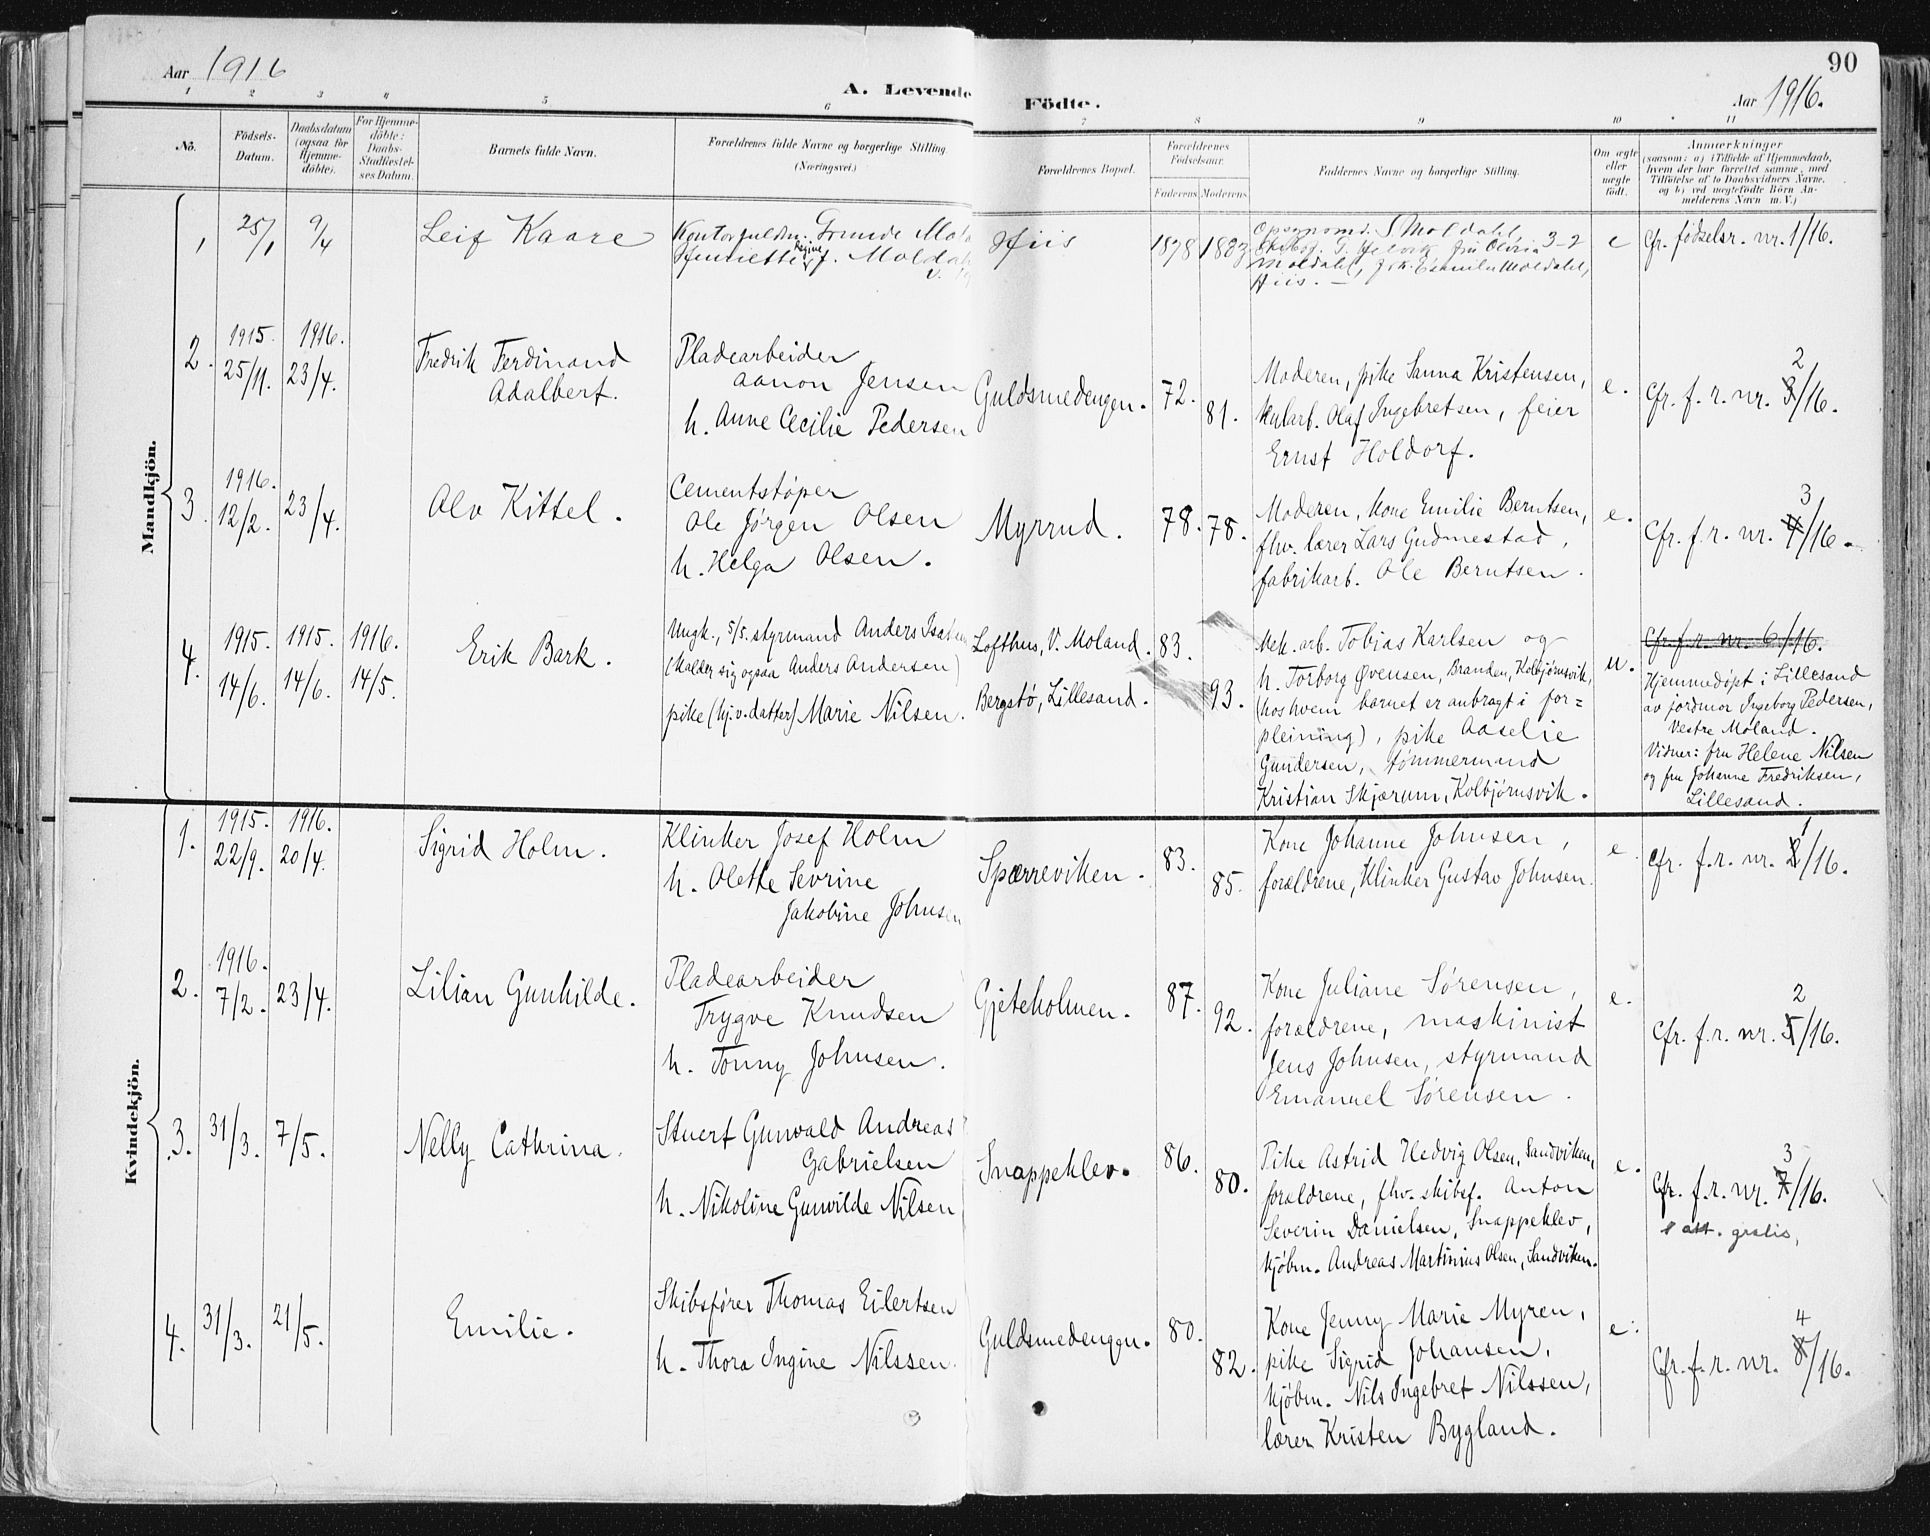 Aar 1916
A. Levende Födte.
Aar 1916.
90
1 2 3 4 5 6 7 8 9 10 11
No.
Födsels-
Datum.
Daabsdatum
(ogsaa for
Hjemme-
döbte).
For Hjemme-
döbte:
Daabs-
Stadfæstel-
ses Datum.
Barnets fulde Navn.
Forældrenes fulde Navne og borgerlige Stilling.
(Næringsvei.)
Forældrenes Bopæl.
Forældrenes
Födselsaar.
Faderens Moderens
Faddernes Navne og borgerlige Stilling.
Om ægte
eller
uægte
födt.
Anmærkninger
(saasom: a) i Tilfælde af Hjemmedaab,
hvem der har forrettet samme, med
Tilföielse af to Daabsvidners Navne,
og b) ved uægtefödte Börn An-
melderens Navn m. V.)
Mandkjön.
1
25/1
9/4
Leif Kaare
Henriette J. Moldahl
Regine
Hiis
1878 1883
Moldahl,
Hiis.
e
Cfr. födselsr. nr. 1/16.
2.
1915. 1916.
25/11. 23/4.
Fredrik Ferdinand
Adalbert.
Pladearbeider
Aanon Jensen
h. Anne Cecilie Pedersen
Guldsmedengen.
72.
81.
Moderen, pike Sanna Kristensen,
kularb. Olaf Ingebretsen, feier
Ernst Holdorf.
e.
2
Cfr. f. r. nr. 3/16.
3.
1916.
12/2. 23/4.
Alv Kittel.
Cementstøper
Ole Jørgen Olsen
h. Helga Olsen.
Myrrud.
78. 78.
Moderen, kone Emilie Berntsen,
fhv. lærer Lars Gudmestad,
fabrikarb. Ole Berntsen.
e.
3
Cfr. f. r. nr. 4/16.
4.
1915. 1915. 1916.
14/6. 14/6. 14/5.
Erik Bark.
Ungk., 5/5. styrmand Anders Isaksen
(kalder sig ogsaa Anders Andersen)
pike (hj.v. datter) Marie Nilsen.
Lofthus, V. Moland.
Bergstø, Lillesand.
83.
93.
Mek. arb. Tobias Karlsen og
h. Torborg Øvensen, Branden, Kolbjørnsvik,
(hos hvem barnet er anbragt i for=
pleining), pike Aaselie
Gundersen, tømmermand
Kristian Skjærum, Kolbjørnsvik.
u.
Cfr. f. r. nr. 6/16.
Hjemmedøpt i Lillesand
av jordmor Ingeborg Pedersen,
Vestre Moland.
Vidner: fru Helene Nilsen
og fru Johanne Fredriksen,
Lillesand.
Kvindekjön.
1.
1915. 1916.
22/9. 20/4.
Sigrid Holm.
Klinker Josef Holm
h. Olette Sevrine
Jakobine Johnsen
Spærreviken.
83.
85.
Kone Johanne Johnsen,
forældrene, Klinker Gustav Johnsen.
e.
1
Cfr. f. r. nr. 2/16.
2.
1916.
7/2. 23/4.
Lilian Gunhilde.
Pladearbeider
Trygve Knudsen
h. Tonny Johnsen.
Gjeteholmen.
87.
92.
Kone Juliane Sørensen,
forældrene, maskinist
Jens Johnsen, styrmand
Emanuel Sørensen.
e.
2
Cfr. f. r. nr. 5/16.
3.
31/3. 7/5.
Nelly Cathrina.
Stuert Gunvald Andreas
Gabrielsen
h. Nikoline Gunvilde Nilsen
Snappeklev.
86.
80.
Pike Astrid Hedvig Olsen, Sandviken,
forældrene, fhv. skibsf. Anton
Severin Danielsen, Snappeklev,
kjøbm. Andreas Martinius Olsen, Sandviken.
e.
3
Cfr. f. r. nr. 7/16.
1 att. gratis,
4.
31/3. 21/5.
Emilie.
Skibsfører Thomas Eilertsen
h. Thora Ingine Nilssen.
Guldsmedengen.
80.
82.
Kone Jenny Marie Myren,
pike Sigrid Johansen,
kjøbm. Nils Ingebret Nilssen,
lærer Kristen Bygland.
e.
4
Cfr. f. r. nr. 8/16.